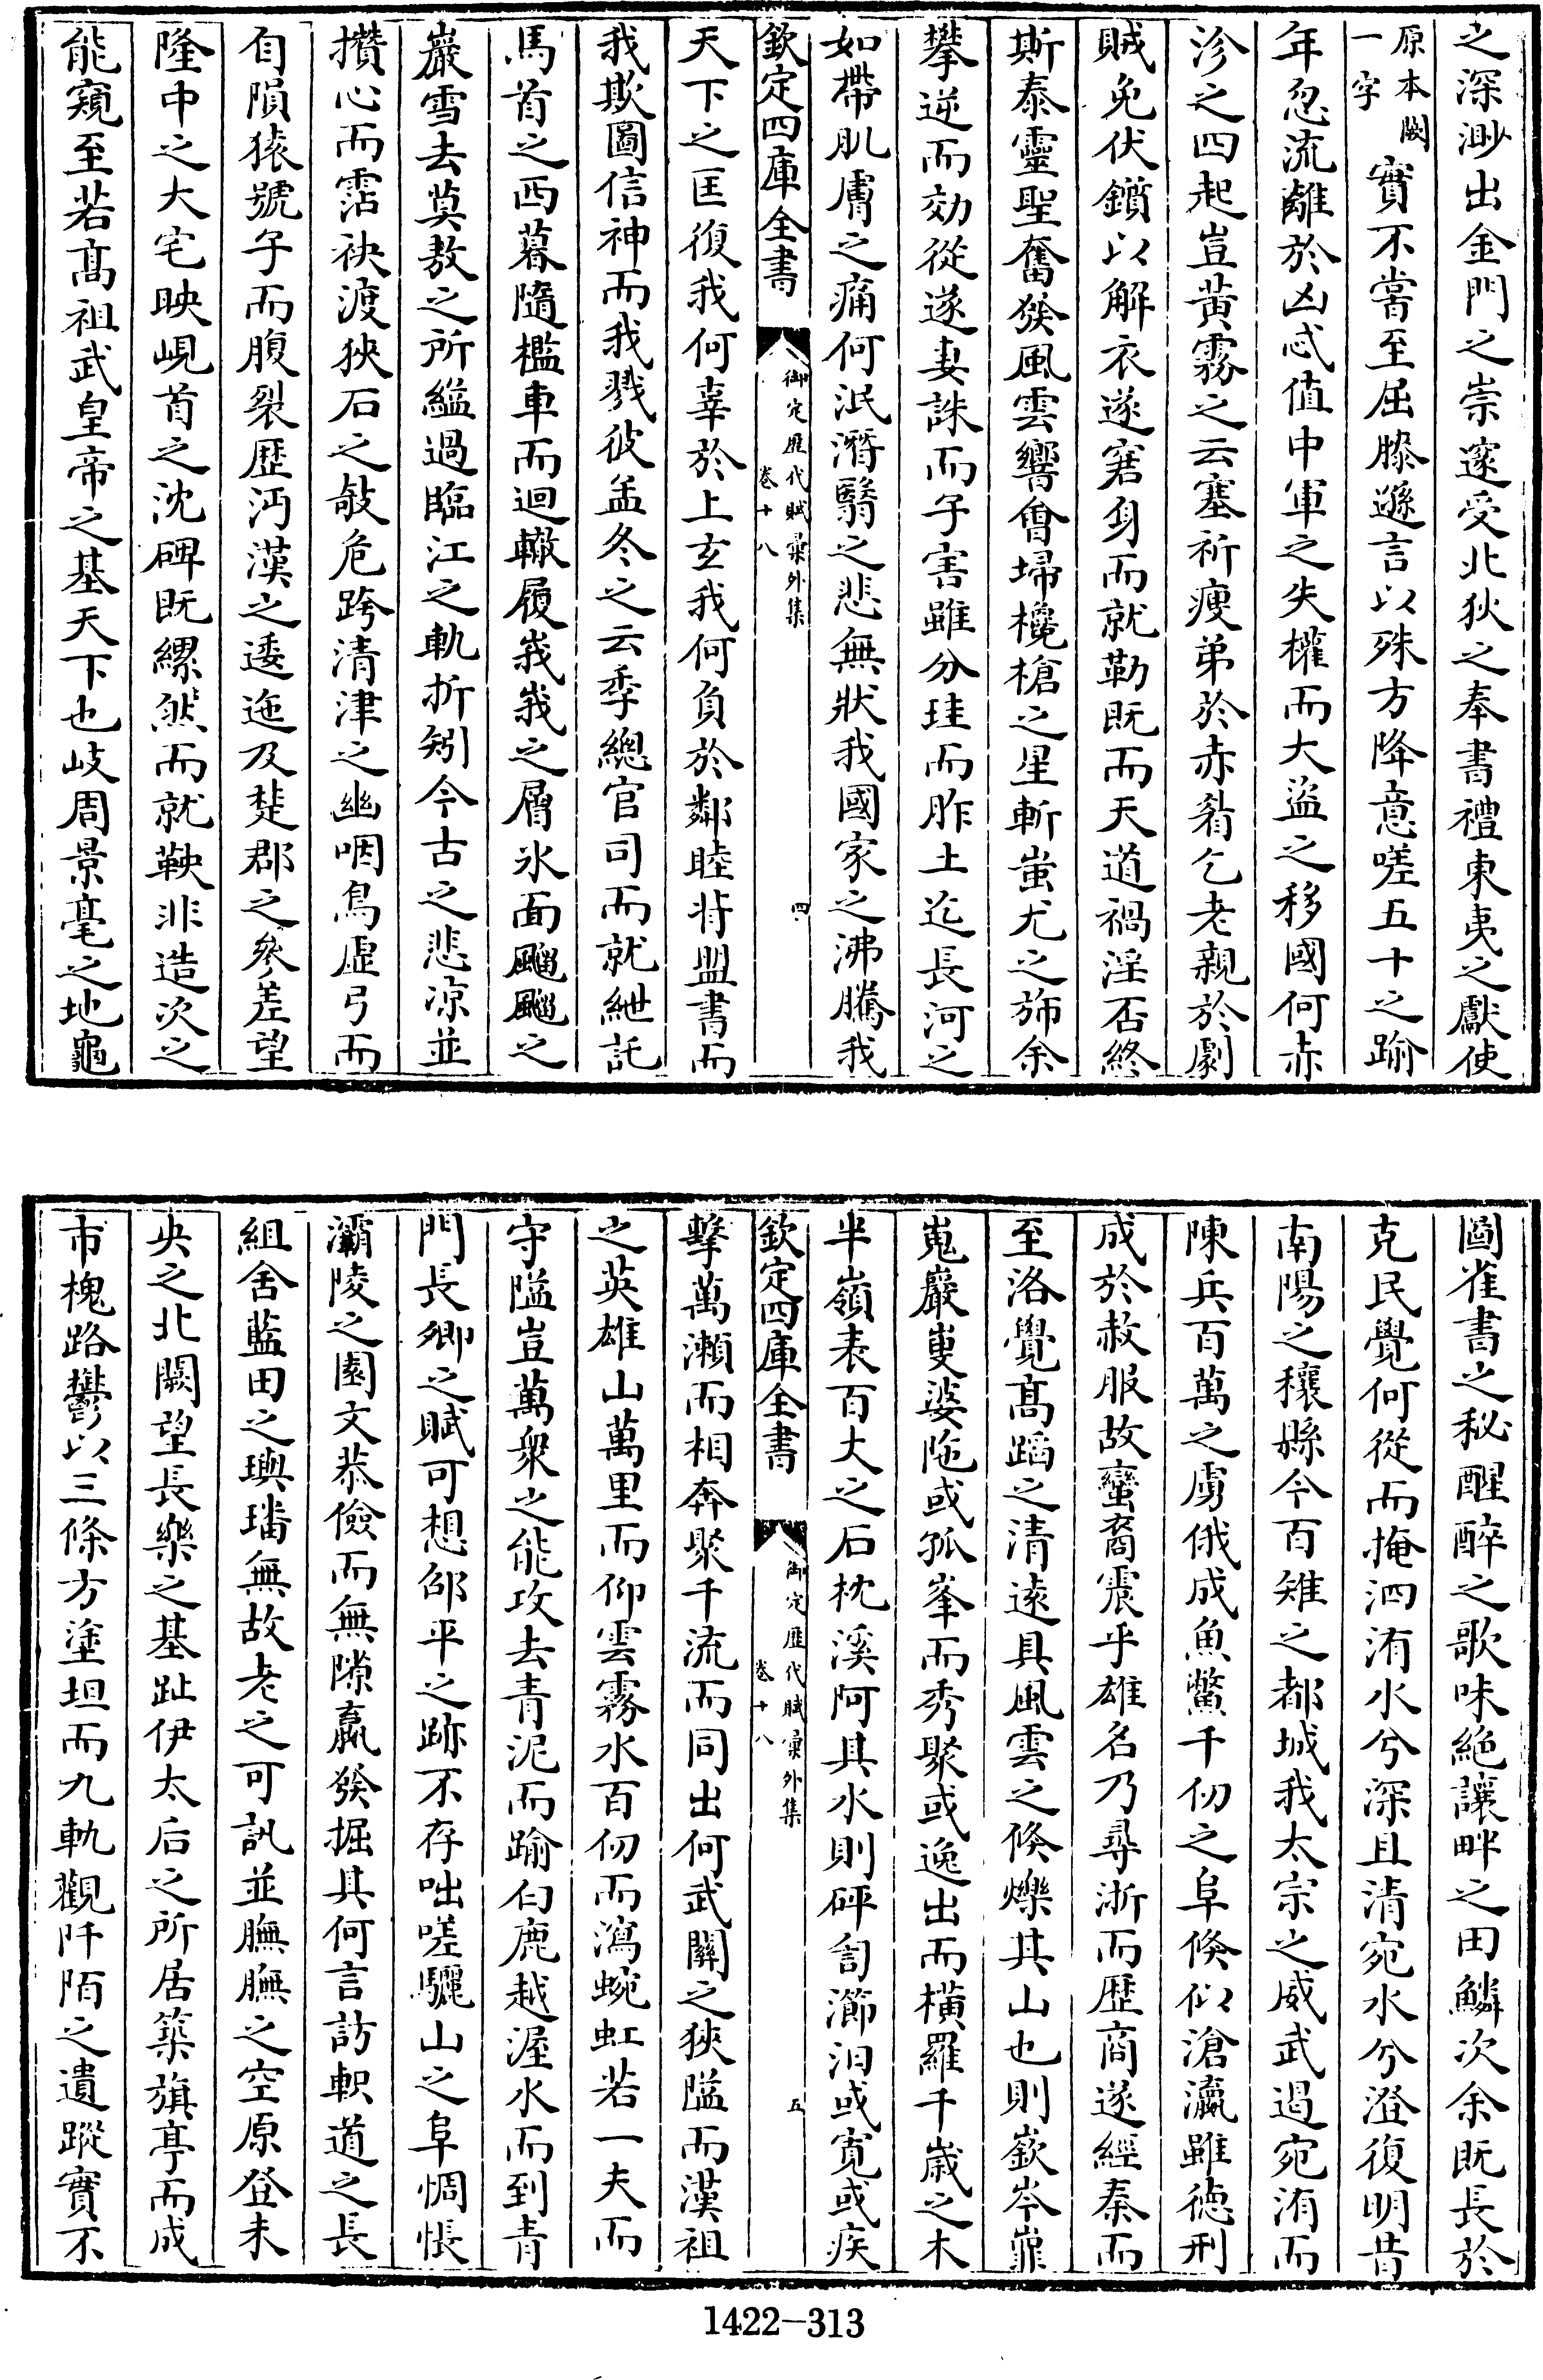 之深渺出金門之崇邃受北狄之奉書禮東夷之獻使
原本闕一字實不嘗至屈膝遜言以殊方降意嗟五十之踰
年忽流離於凶忒值中軍之失權而大盜之移國何赤
沴之四起豈黃霧之云塞祈瘦弟於赤眉乞老親於劇
賊免伏鑕以解衣遂窘身而就勒既而天道禍淫否終
斯泰靈聖奮發風雲響會埽欃槍之星斬蚩尤之旆余
攀逆而効從遂妻誅而子害雖分珪而胙土迄長河之
如帶肌膚之痛何泯潛翳之悲無狀我國家之沸騰我
欽定四庫全書
御定歷代賦彙外集
卷十八
四
天下之匡復我何辜於上玄我何負於鄰睦背盟書而
我欺圖信神而我戮彼孟冬之云季總官司而就紲託
馬首之西暮隨檻車而迴轍履峩峩之層氷面飈飈之
巖雪去莫敖之所縊過臨江之軌折矧今古之悲凉並
攢心而霑袂渡狹石之敧危跨清津之幽咽鳥虛弓而
自隕猿號子而腹裂歷沔漢之逶迤及楚郡之參差望
隆中之大宅映峴首之沈碑既縲然而就鞅非造次之
能窺至若髙祖武皇帝之基天下也岐周景亳之地龜
圖雀書之秘醒醉之歌味絶讓畔之田鱗次余既長於
克民覺何從而掩泗洧水兮深且清宛水兮澄復明昔
南陽之穰縣今百雉之都城我太宗之威武遏宛洧而
陳兵百萬之虜俄成魚鱉千仞之阜倐似滄瀛雖德刑
成於赦服故蠻裔震乎雄名乃尋淅而歷商遂經秦而
至洛覺髙蹈之清遠具風雲之倐爍其山也則嶔岑崋
嵬巖㟥婆陁或孤峯而秀聚或逸出而橫羅千歲之木
半嶺表百丈之石枕溪阿其水則砰訇瀄汩或寛或疾
欽定四庫全書
御定歷代賦彙外集
卷十八
五
擊萬瀨而相奔聚千流而同出何武關之狹隘而漢祖
之英雄山萬里而仰雲霧水百仞而瀉蜿虹若一夫而
守隘豈萬衆之能攻去青泥而踰白鹿越滻水而到青
門長卿之賦可想邵平之跡不存咄嗟驪山之阜惆悵
灞陵之園文恭儉而無隙嬴發掘其何言訪軹道之長
組舍藍田之璵璠無故老之可訊並膴膴之空原登未
央之北闕望長樂之基趾伊太后之所居築旗亭而成
市槐路鬱以三條方塗坦而九軌觀阡陌之遺蹤實不
1422-313